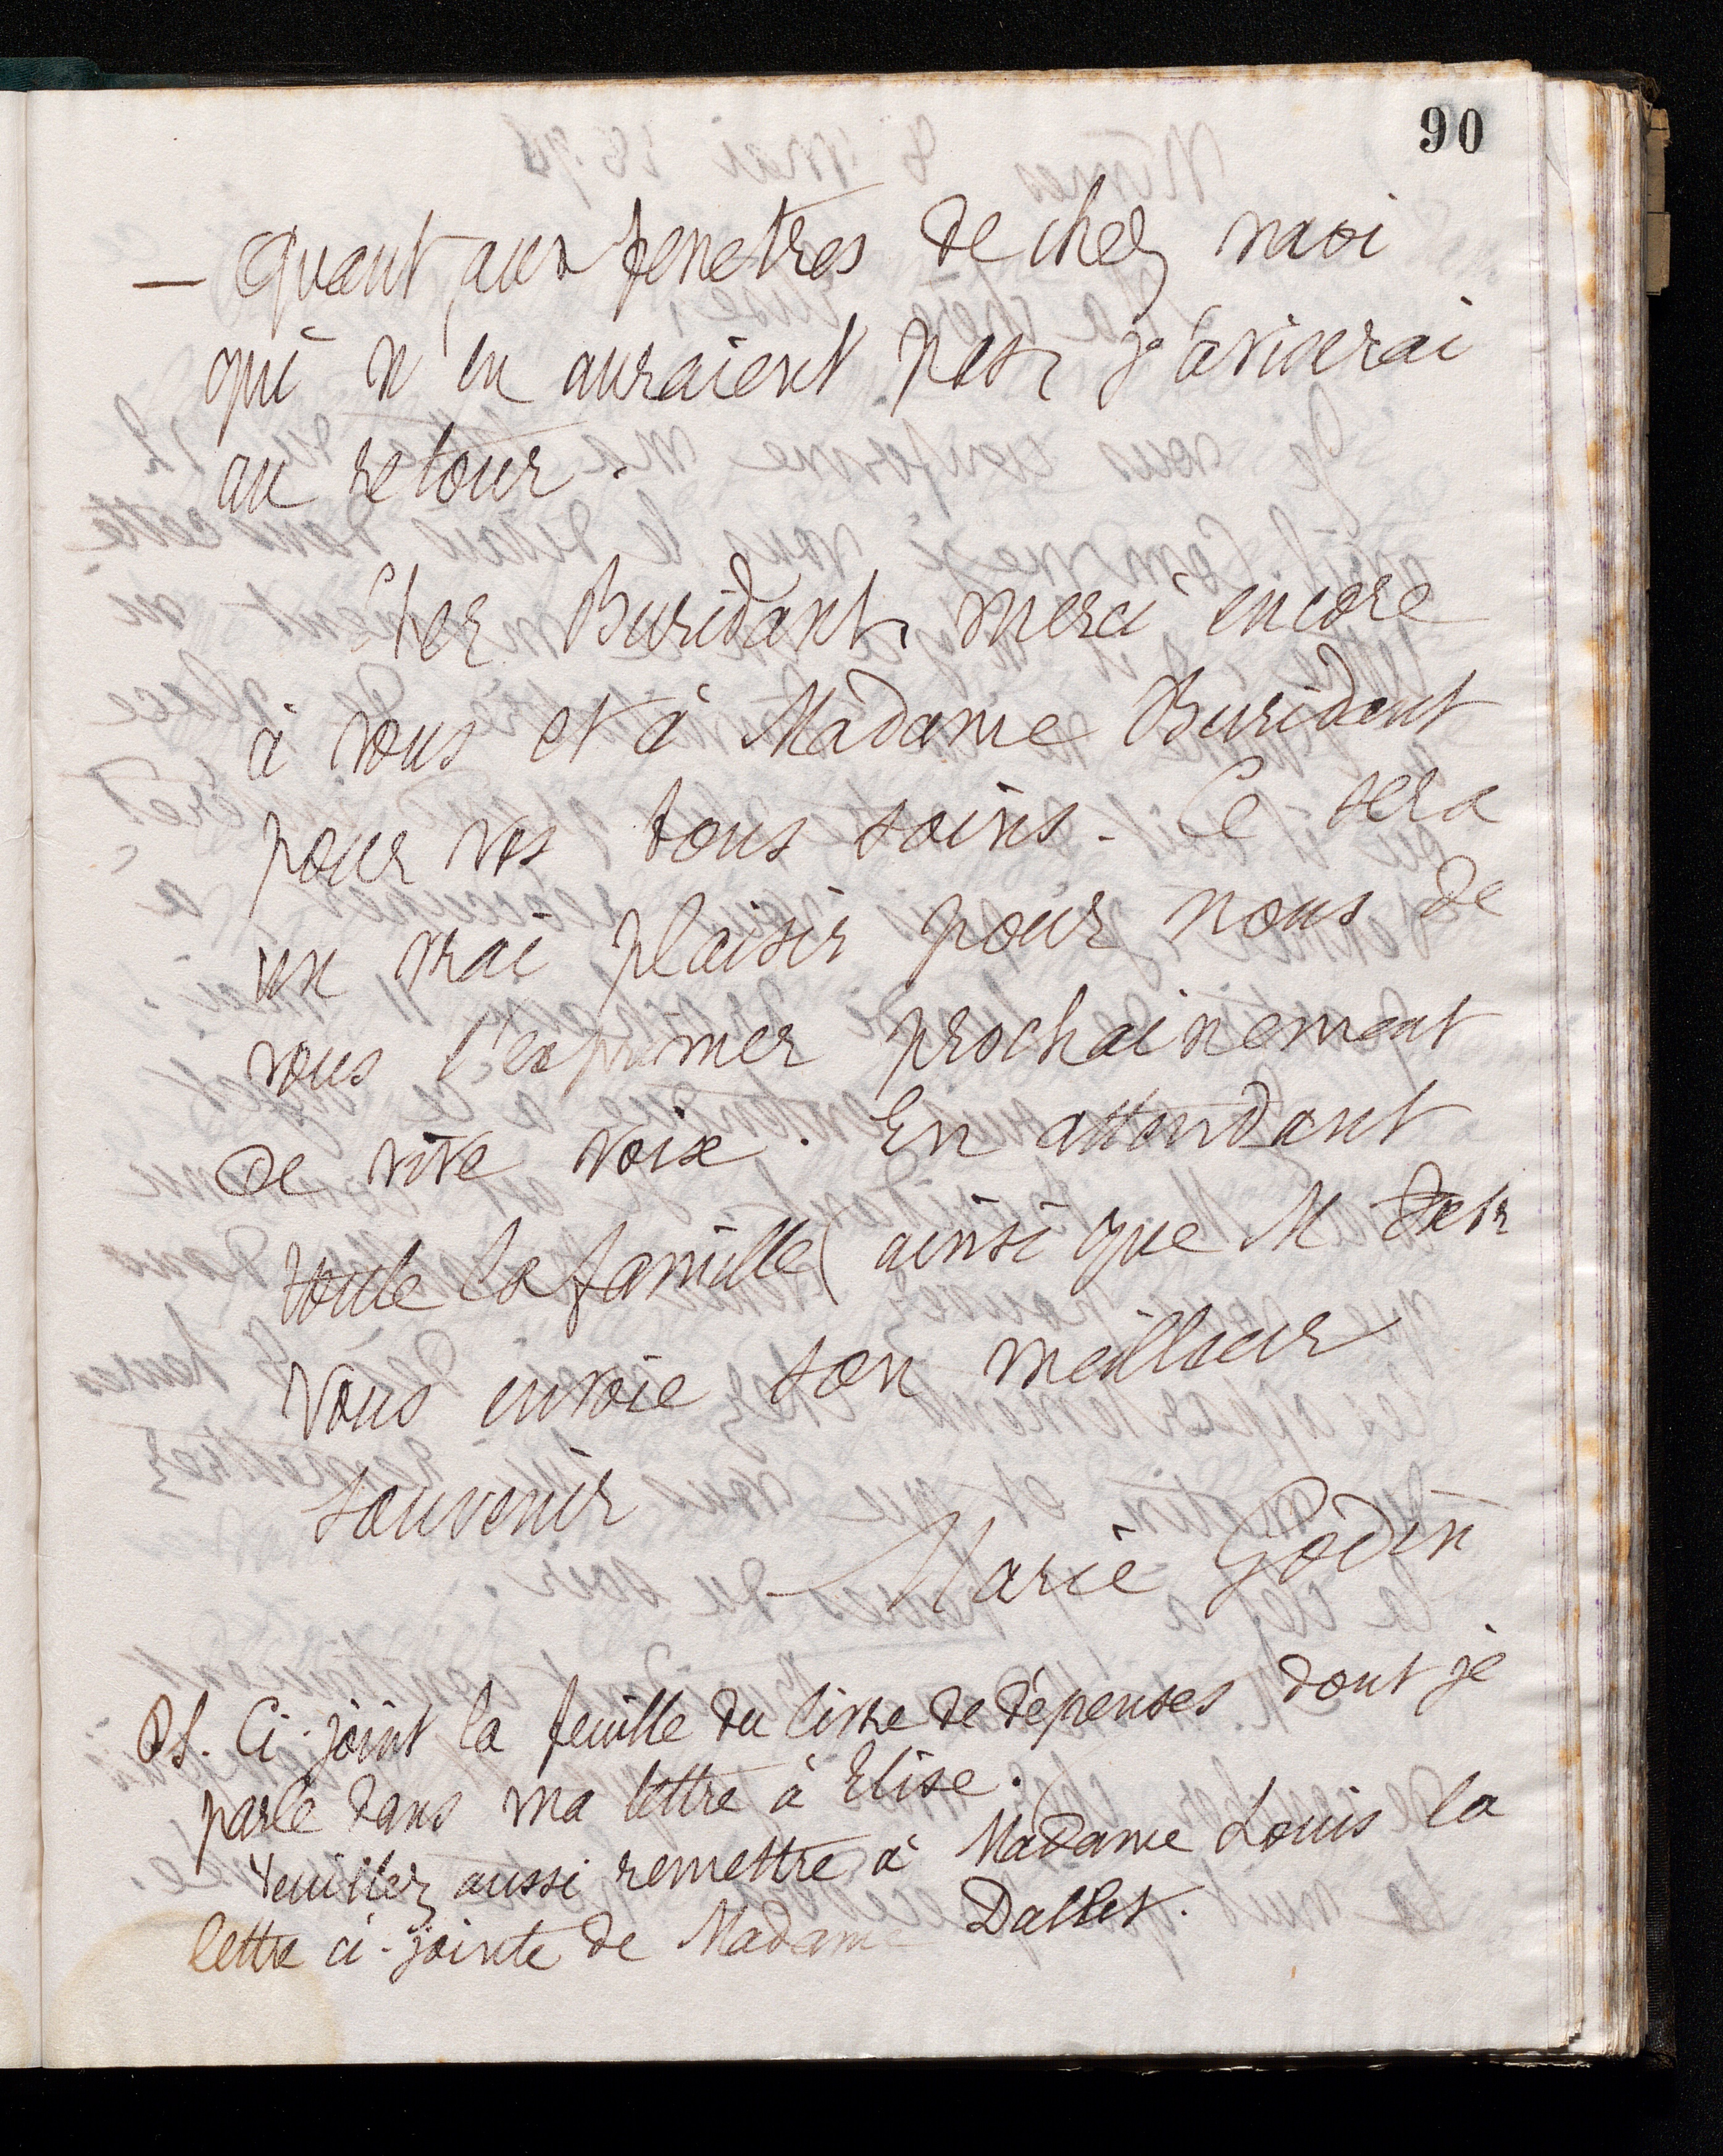 90
— Quant aux fenetres de chez moi
qui n'en auraient pas, j'aviserai
au retour.
Cher Buridant, merci encore
à vous et à Madame Buridant
pour vos bons soins. Ce sera
un vrai plaisir pour nous de
vous l'exprimer prochainement
de vive voix. En attendant
toute la famille (ainsi que M
vous envoie son meilleur
souvenir
Marie Godin
PS. Ci-joint la feuille du livre de dépenses dont je
parle dans ma lettre à Elise.
Veuillez aussi remettre à Madame Louis la
lettre ci-jointe de Madame Dallet.